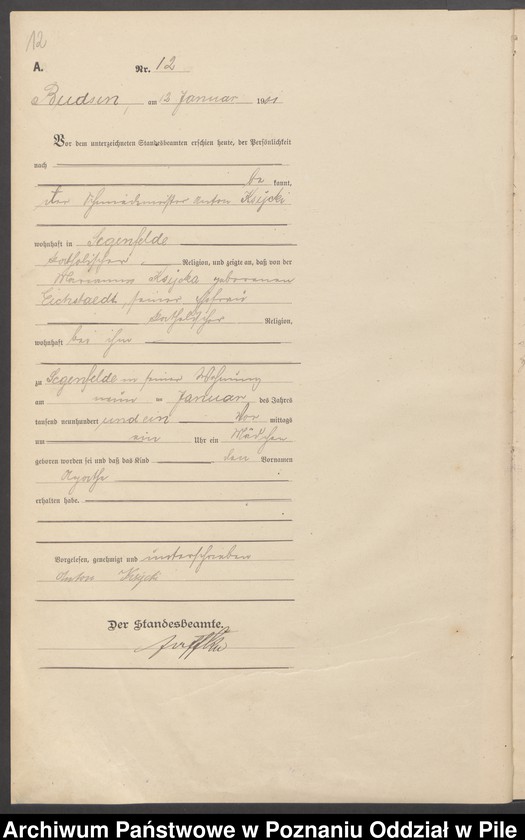 12
A. Nr. 12
Budsin, am 12 Januar 1901
Vor dem unterzeichneten Standesbeamten erschien heute, der Persönlichkeit
nach
be kannt,
der Schmiedemeister Anton Ksycki
wohnhaft in Segenfelde
katholischer Religion, und zeigte an, daß von der
Marianna Ksycka geborenen
Eichstaedt, seiner Ehefrau
katholischer Religion,
wohnhaft bei ihm
zu Segenfelde in seiner Wohnung
am neun ten Januar des Jahres
tausend neunhundert und ein Vor mittags
um ein Uhr ein Mädchen
geboren worden sei und daß das Kind den Vornamen
Agathe
erhalten habe.
Vorgelesen, genehmigt und unterschrieben
Anton Ksycki
Der Standesbeamte.
Archiwum Państwowe w Poznaniu Oddział w Pile